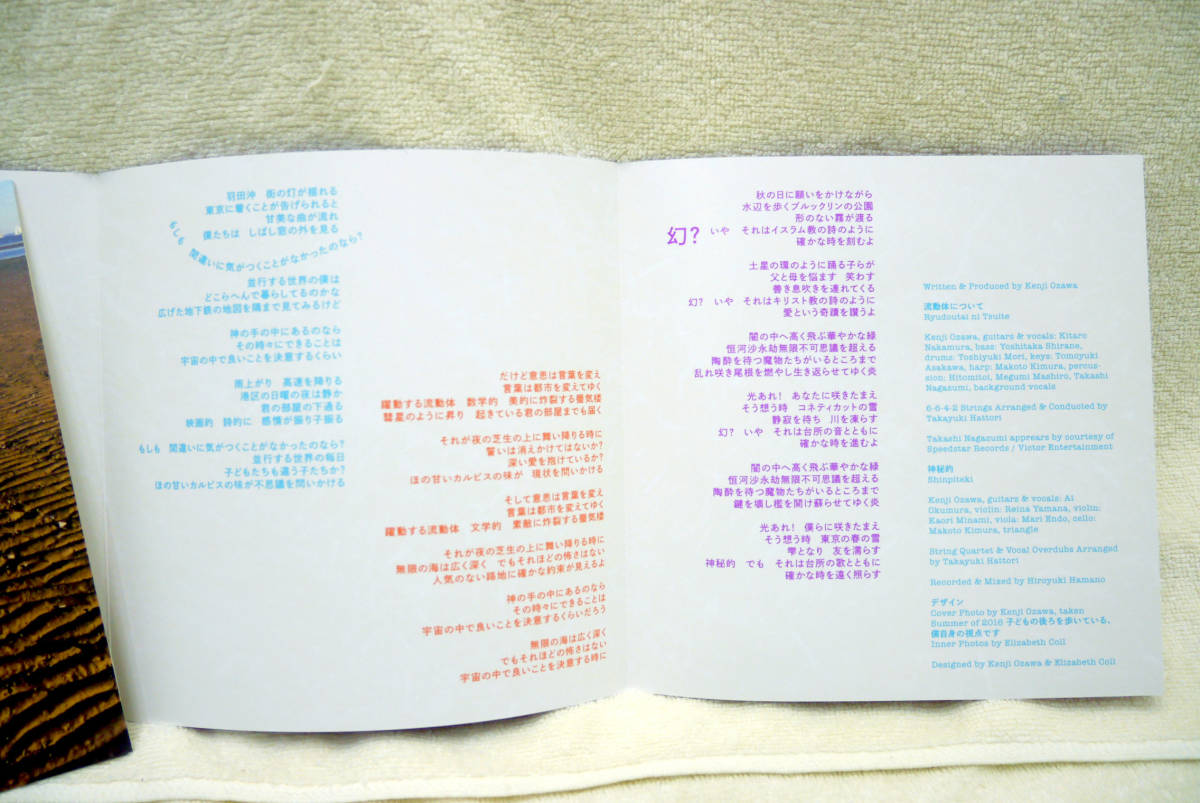 羽田沖　街の灯が揺れる
東京に着くことが告げられると
甘美な曲が流れ
僕たちは　しばし窓の外を見る
もしも　間違いに気がつくことがなかったのなら?
並行する世界の僕は
どこらへんで暮らしてるのかな
広げた地下鉄の地図を隅まで見てみるけど
神の手の中にあるのなら
その時々にできることは
宇宙の中で良いことを決意するくらい
雨上がり　高速を降りる
港区の日曜の夜は静か
君の部屋の下通る
映画的　詩的に　感情が振り子振る
もしも　間違いに気がつくことがなかったのなら?
並行する世界の毎日
子どもたちも違う子たちか?
ほの甘いカルピスの味が不思議を問いかける
だけど意思は言葉を変え
言葉は都市を変えてゆく
躍動する流動体　数学的　美的に炸裂する蜃気楼
彗星のように昇り　起きている君の部屋までも届く
それが夜の芝生の上に舞い降りる時に
誓いは消えかけてはないか?
深い愛を抱けているか?
ほの甘いカルピスの味が　現状を問いかける
そして意思は言葉を変え
言葉は都市を変えてゆく
躍動する流動体　文学的　素敵に炸裂する蜃気楼
それが夜の芝生の上に舞い降りる時に
無限の海は広く深く　でもそれほどの怖さはない
人気のない路地に確かな約束が見えるよ
神の手の中にあるのなら
その時々にできることは
宇宙の中で良いことを決意するくらいだろう
無限の海は広く深く
でもそれほどの怖さはない
宇宙の中で良いことを決意する時に
秋の日に願いをかけながら
水辺を歩くブルックリンの公園
形のない霧が渡る
幻?　いや　それはイスラム教の詩のように
確かな時を刻むよ
土星の環のように踊る子らが
父と母を悩ます　笑わす
善き息吹きを連れてくる
幻?　いや　それはキリスト教の詩のように
愛という奇蹟を讃うよ
闇の中へ高く飛ぶ華やかな緑
恒河沙永劫無限不可思議を超える
陶酔を待つ魔物たちがいるところまで
乱れ咲き尾根を燃やし生き返らせてゆく炎
光あれ!　あなたに咲きたまえ
そう想う時　コネティカットの雪
静寂を待ち　川を凍らす
幻?　いや　それは台所の音とともに
確かな時を進むよ
闇の中へ高く飛ぶ華やかな緑
恒河沙永劫無限不可思議を超える
陶酔を待つ魔物たちがいるところまで
鍵を壊し檻を開け蘇らせてゆく炎
光あれ!　僕らに咲きたまえ
そう想う時　東京の春の雪
雫となり　友を濡らす
神秘的　でも　それは台所の歌とともに
確かな時を遠く照らす
Written & Produced by Kenji Ozawa
流動体について
Ryudoutai ni Tsuite
Kenji Ozawa, guitars & vocals: Kitaro
Nakamura, bass: Yoshitaka Shirane,
drums: Toshiyuki Mori, keys: Tomoyuki
Asakawa, harp: Makoto Kimura, percus-
sion: Hitomitoi, Megumi Mashiro, Takashi
Nagazumi, background vocals
6-6-4-2 Strings Arranged & Conducted by
Takayuki Hattori
Takashi Nagazumi apprears by courtesy of
Speedstar Records / Victor Entertainment
神秘的
Shinpiteki
Kenji Ozawa, guitars & vocals: Ai
Okumura, violin: Reina Yamana, violin:
Kaori Minami, viola: Mari Endo, cello:
Makoto Kimura, triangle
String Quartet & Vocal Overdubs Arranged
by Takayuki Hattori
Recorded & Mixed by Hiroyuki Hamano
デザイン
Cover Photo by Kenji Ozawa, taken
Summer of 2016 子どもの後ろを歩いている、
僕自身の視点です
Inner Photos by Elizabeth Coll
Designed by Kenji Ozawa & Elizabeth Coll